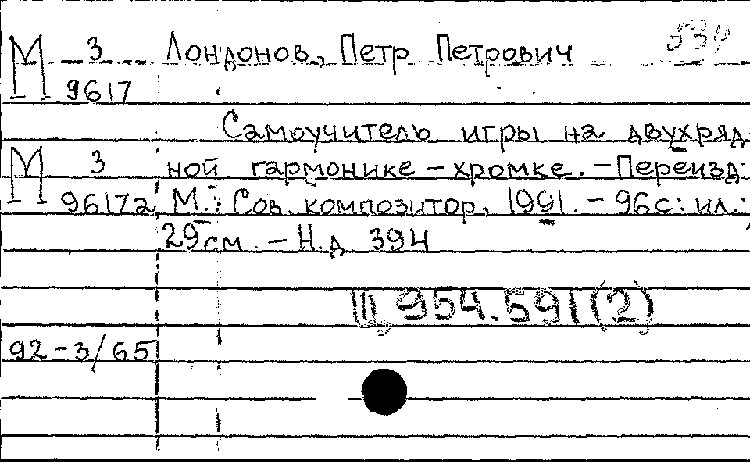 М 3 Лондонов, Петр Петрович
9617
Самоучитель игры на двухряд
М 3 ной гармонике – хромке. – Переизд.
9617а М.: Сов. композитор, 1991. – 96с: ил.;
29см. – Н.д 394
Щ 954.591(2)
92-3/65